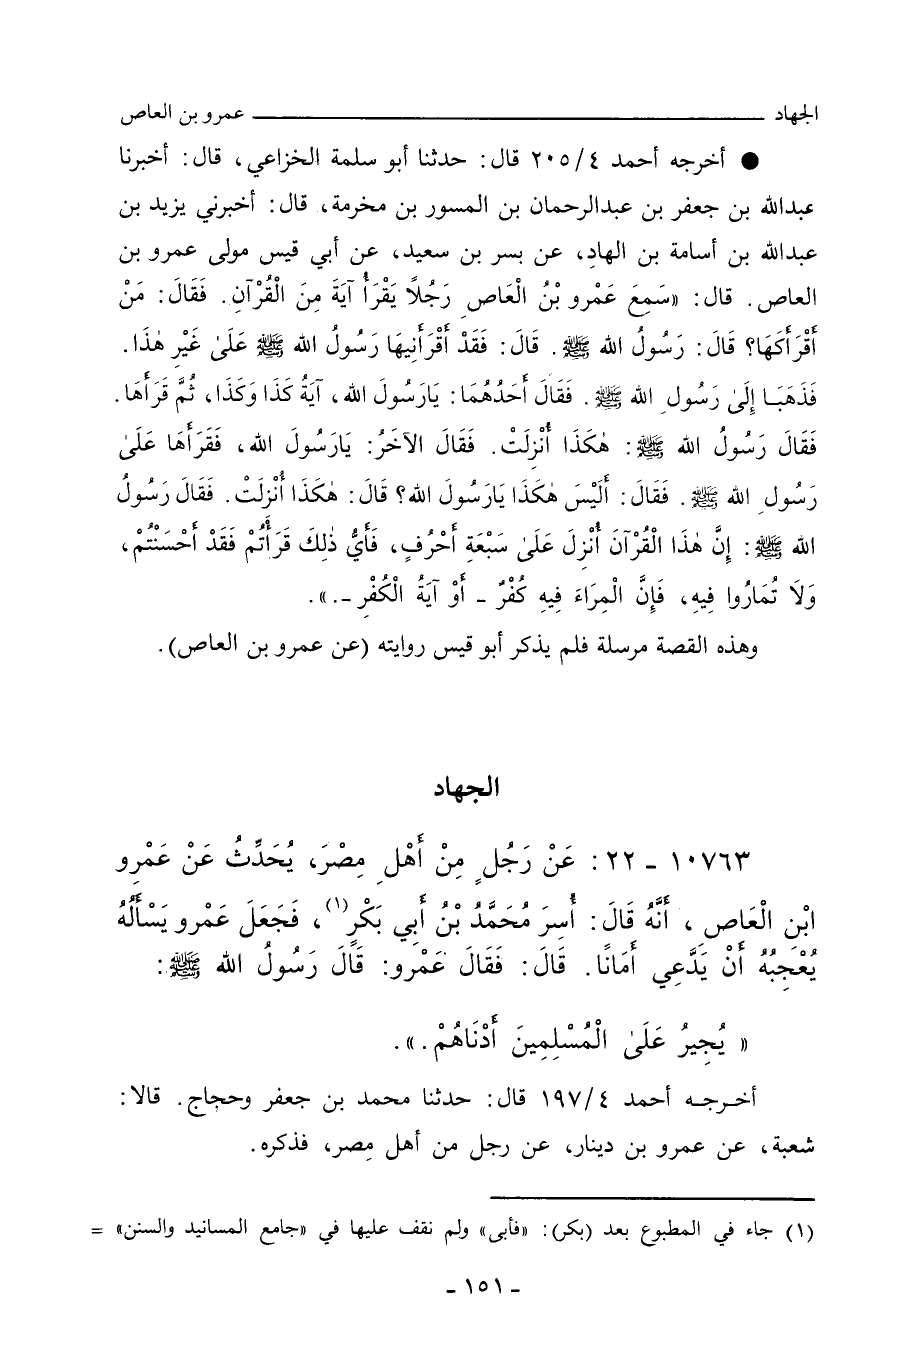 الجهاد ـــــــــــــــــــــــــ عمرو بن العاص
● أخرجه أحمد ٢٠٥/٤ قال: حدثنا أبو سلمة الخزاعي، قال: أخبرنا
عبدالله بن جعفر بن عبدالرحمان بن المسور بن مخرمة، قال: أخبرني يزيد بن
عبدالله بن أسامة بن الهادِ، عن بسر بن سعيد، عن أبي قيس مولى عمرو بن
العاص. قال: «سَمِعَ عَمْرو بْنُ الْعَاصِ رَجُلًا يَقْرَأُ آيَةً مِنَ الْقُرْآنِ. فَقَالَ: مَنْ
أَقْرَأَكَهَا؟ قَالَ: رَسُولُ الله ﷺ. قَالَ: فَقَدْ أَقْرَأَنِيهَا رَسُولُ الله ﷺ عَلَىٰ غَيْرِ هٰذَا.
فَذَهَبَـا إِلَىٰ رَسُولِ الله ﷺ. فَقَالَ أَحَدُهُمَا: يَارَسُولَ الله، آيَةُ كَذَا وَكَذَا، ثُمَّ قَرَأَهَا.
فَقَالَ رَسُولُ الله ﷺ: هٰكَذَا أُنْزِلَتْ. فَقَالَ الآخَرُ: يَارَسُولَ الله، فَقَرَأَهَا عَلَىٰ
رَسُولِ الله ﷺ. فَقَالَ: أَلَيْسَ هٰكَذَا يَارَسُولَ الله؟ قَالَ: هٰكَذَا أُنْزِلَتْ. فَقَالَ رَسُولُ
الله ﷺ: إِنَّ هٰذَا الْقُرْآنَ أُنْزِلَ عَلَىٰ سَبْعَةِ أَحْرُفٍ، فَأَيُّ ذٰلِكَ قَرَأْتُمْ فَقَدْ أَحْسَنْتُمْ،
وَلَا تُمَارُوا فِيهِ، فَإِنَّ الْمِرَاءَ فِيهِ كُفْرٌ ـ أَوْ آيَةُ الْكُفْرِ ـ.».
وهذه القصة مرسلة فلم يذكر أبو قيس روايته (عن عمرو بن العاص).
الجهاد
١٠٧٦٣ ـ ٢٢: عَنْ رَجُلٍ مِنْ أَهْلِ مِصْرَ، يُحَدِّثُ عَنْ عَمْرِو
ابْنِ الْعَاصِ، أَنَّهُ قَالَ: أُسِرَ مُحَمَّدُ بْنُ أَبِي بَكْرٍ(١)، فَجَعَلَ عَمْرو يَسْأَلُهُ
يُعْجِبُهُ أَنْ يَدَّعِي أَمَانًا. قَالَ: فَقَالَ عَمْرو: قَالَ رَسُولُ الله ﷺ:
« يُجِيرُ عَلَىٰ الْمُسْلِمِينَ أَدْنَاهُمْ.».
أخـرجـه أحمد ١٩٧/٤ قال: حدثنا محمد بن جعفر وحجاج. قالا:
شعبة، عن عمرو بن دينار، عن رجل من أهل مصر، فذكره.
(١) جاء في المطبوع بعد (بكر): «فأبى» ولم نقف عليها في «جامع المسانيد والسنن» =
ـ ١٥١ ـ